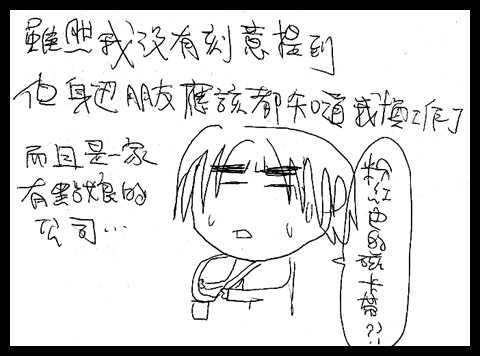 雖然我沒有刻意提到
但身邊朋友應該都知道我換工作了
而且是一家
有點娘的
公司…
粉紅色的磁卡帶??